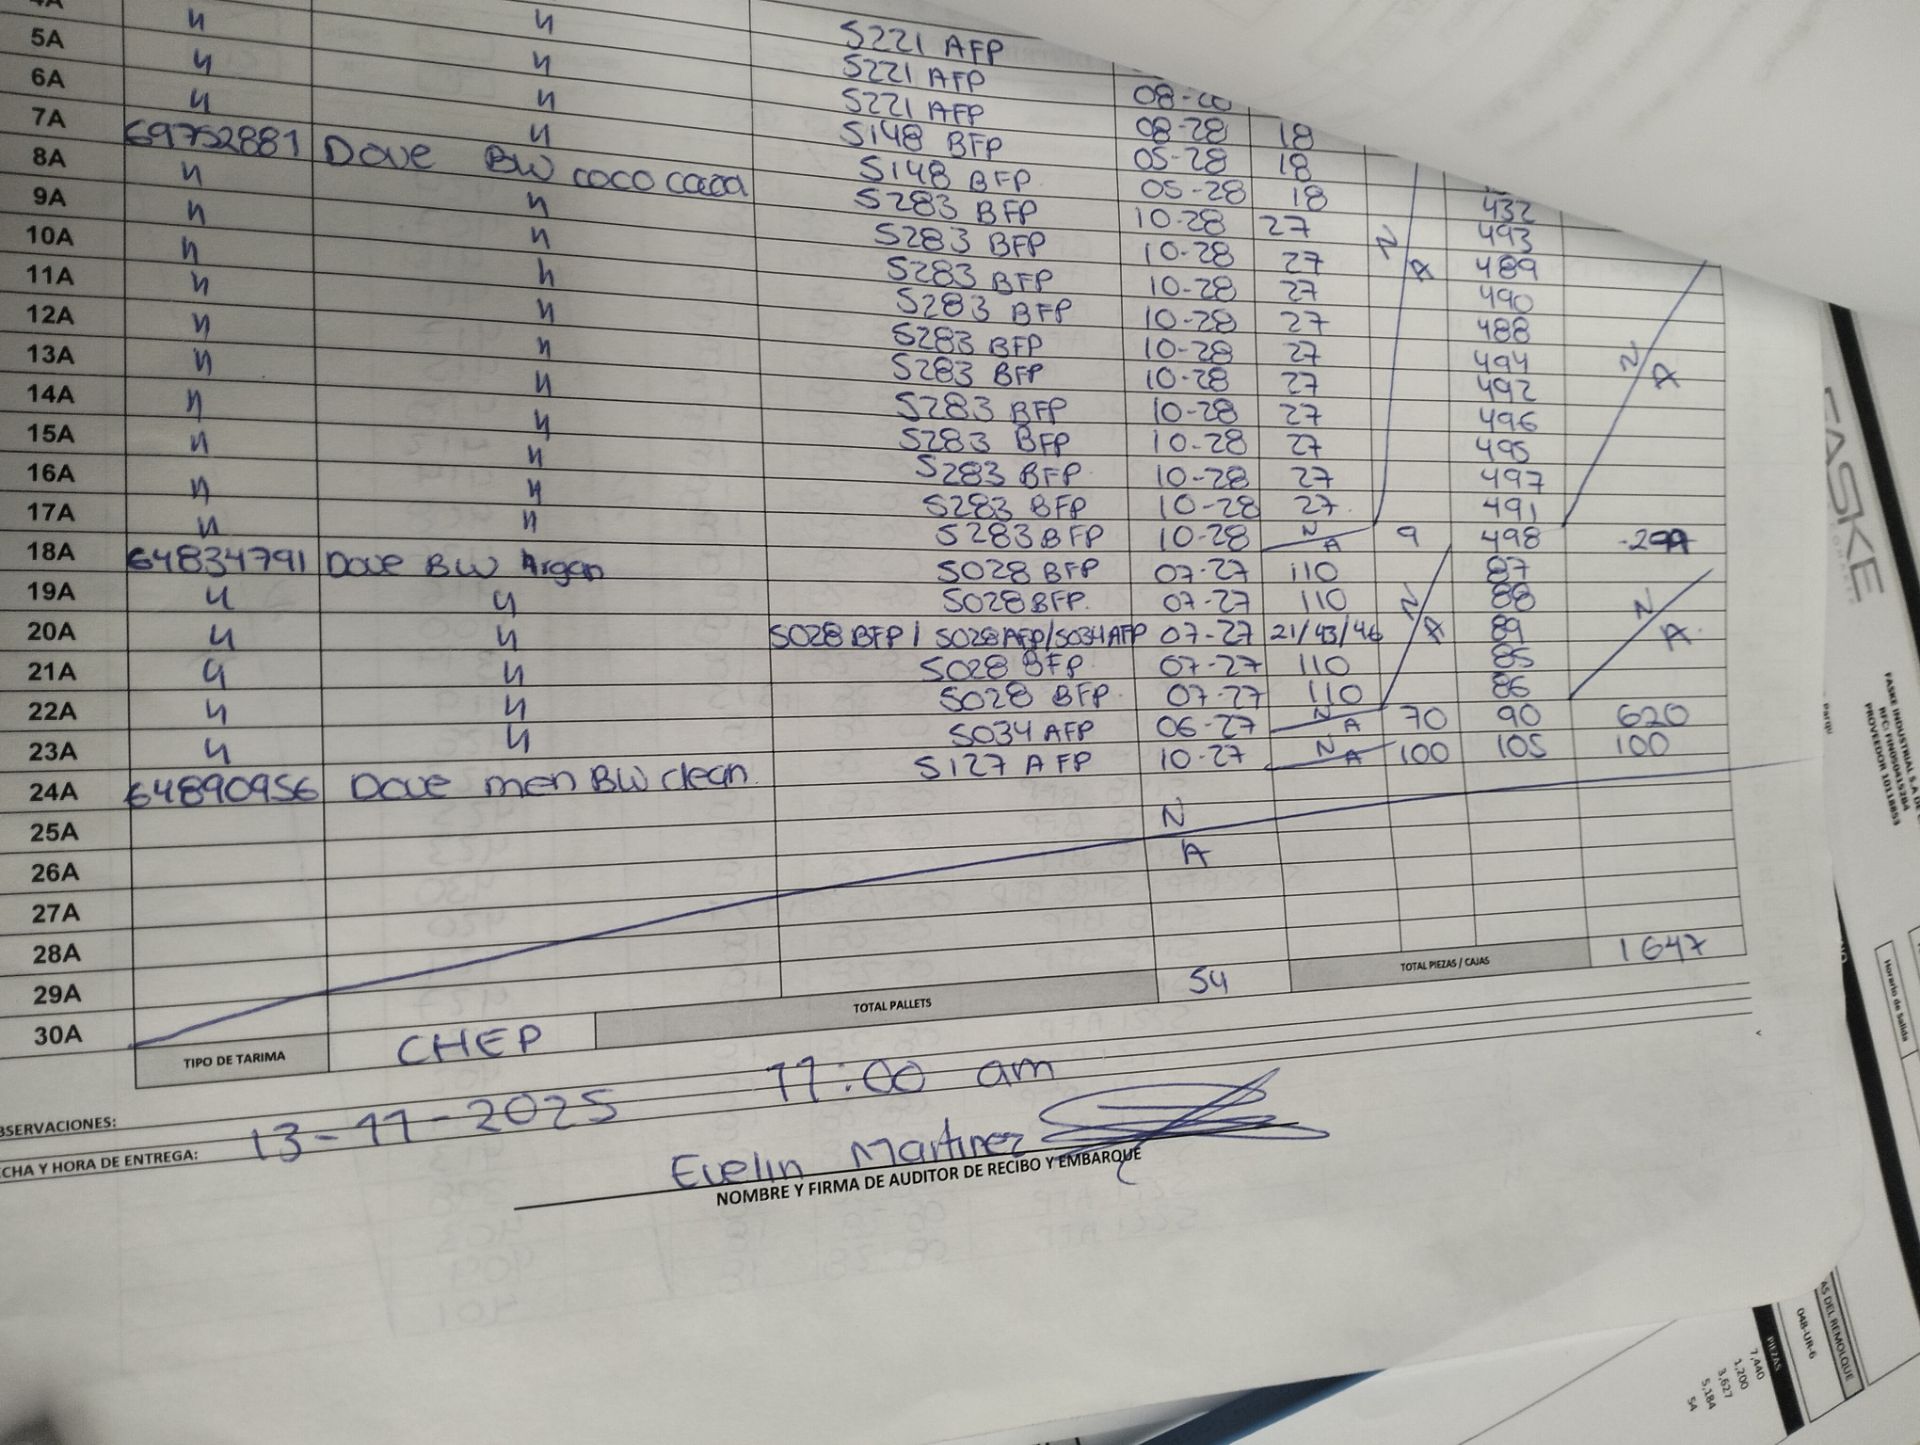 5A 〃 〃 S221 AFP
6A 〃 〃 S221 AFP
7A 〃 〃 S221 AFP 08-28 18
8A 69752881 Dove BW coco cacao S148 BFP 05-28 18
9A 〃 〃 S148 BFP 05-28 18 432
10A 〃 〃 S283 BFP 10-28 27 493
11A 〃 〃 S283 BFP 10-28 27 489
12A 〃 〃 S283 BFP 10-28 27 490
13A 〃 〃 S283 BFP 10-28 27 488
14A 〃 〃 S283 BFP 10-28 27 494
15A 〃 〃 S283 BFP 10-28 27 492
16A 〃 〃 S283 BFP 10-28 27 496
17A 〃 〃 S283 BFP 10-28 27 495
S283 BFP 10-28 27 497
S283 BFP 10-28 27 491
S283 BFP 10-28 N/A 9 498
N/A
N/A
18A 64834791 Dove BW Argan S028 BFP 07-27 110 87
19A 〃 〃 S028 BFP 07-27 110 88
20A 〃 〃 S028 BFP / S028 AFP / S034 AFP 07-27 21/43/46 N/A 89 N/A
21A 〃 〃 S028 BFP 07-27 110 85
22A 〃 〃 S028 BFP 07-27 110 86
23A 〃 〃 S034 AFP 06-27 N/A 70 90 620
24A 64890956 Dove men BW clean S127 AFP 10-27 N/A 100 105 100
25A
26A N/A
27A
28A
29A
30A
TOTAL PALLETS 54 TOTAL PIEZAS / CAJAS 1647
TIPO DE TARIMA CHEP
SERVACIONES:
CHA Y HORA DE ENTREGA: 13-11-2025 11:00 am
Evelin Martinez
NOMBRE Y FIRMA DE AUDITOR DE RECIBO Y EMBARQUE
FASKE
FASKE INDUSTRIAL S.A DE
PROVEEDOR 10118853
Horario de Salida
AS DEL REMOLQUE
048-UR-6
PIEZAS
7,440
1,200
3,627
5,184
54